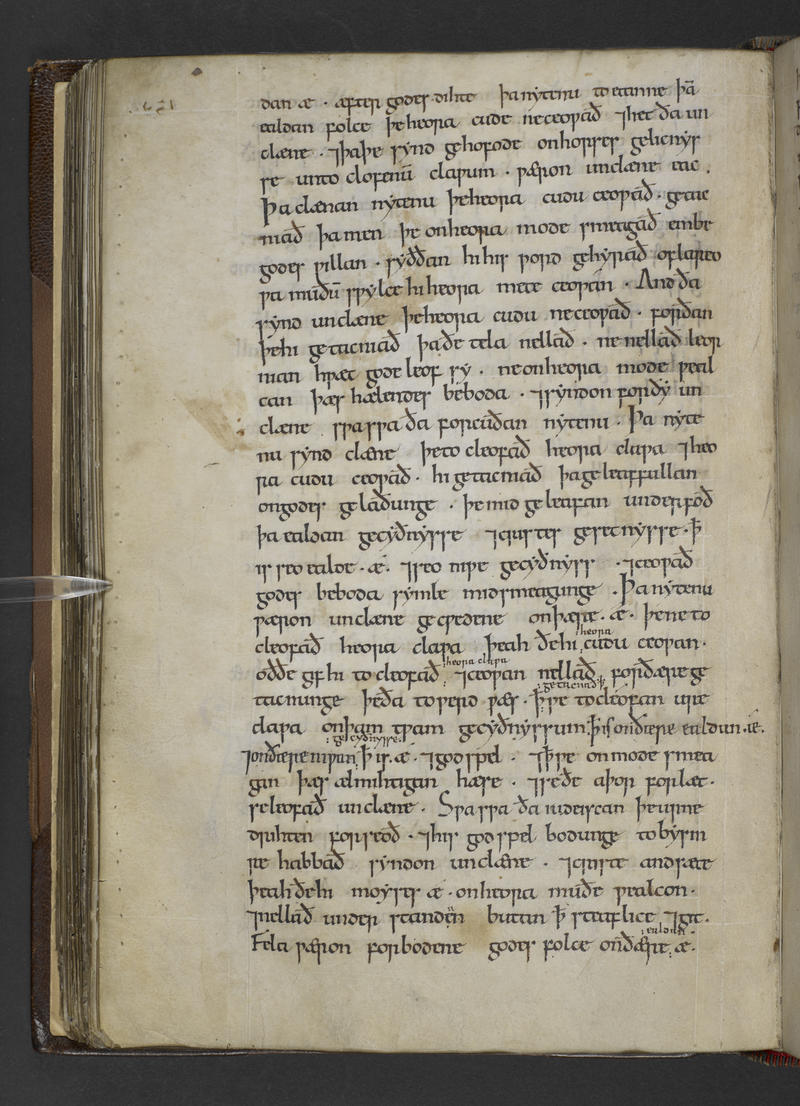 dan æ · æfter godes dihte þa nytenu to etanne þā
ealdan folce þe heora cude ne ceowað ⁊ het ða un
clæne · ⁊ þa þe synd gehofode on horses gelicnys
se unto clofenū clawum · wæron unclæne eac ·
Þa clænan nytenu þe heora cudu ceowað · getac
niað þa men þe on heora mode smeagað embe
godes willan · syððan hi his word gehyrað of lareo
wa muðū swylce hi heora mete ceowan · And ða
synd unclæne þe heora cudu ne ceowað · forðan
þe hi getacniað þa ðe tela nellað · ne nellað leor
nian hwæt gode leof sy · ne on heora mode weal
can þæs hælendes beboda · ⁊ syndon forðy un
clæne swa swa ða forcuðan nytenu · Þa nyte
nu synd clæne þe to cleofað heora clawa ⁊ heo
ra cudu ceowað · hi getacniað þa geleaffullan
on godes gelaðunge · þe mid geleafan underfoð
þa ealdan gecyðnysse ⁊ cristes gesetnysse · ꝥ
is seo ealde · æ · ⁊ seo niwe gecyðnyss · ⁊ ceowað
godes beboda symle mid smeagunge · Þa nytenu
wæron unclæne gecwedene on þære · æ · þe ne to
heora
cleofað heora clawa þeah ðe hi cudu ceowan ·
heora clawa
oððe gif hi to cleofað ⁊ ceowan nellað · for ðære ge
getacnað ꝥ
tacnunge þe ða towerd wæs · ꝥ we tocleofan ure
clawa on þam twam gecyðnyssum · ꝥ is on ðære ealdan · æ ·
gecyðnysse
⁊ on ðære niwan · ꝥ is · æ · ⁊ godspel · ⁊ ꝥ we on mode smea
gan þæs ælmihtigan hæse · ⁊ se ðe aþor forlæt ·
se leofað unclæne · Swa swa ða iudeiscan þe urne
drihten forseoð · ⁊ his godspel bodunge to bysm
re habbað syndon unclæne · ⁊ criste andsæte
þeah ðe hi moyses æ · on heora muðe wealcon ·
⁊ nellað understanden butan ꝥ steaflice ⁊git ·
ealdan
Fela wæron forbodene godes folce on ðære · æ ·